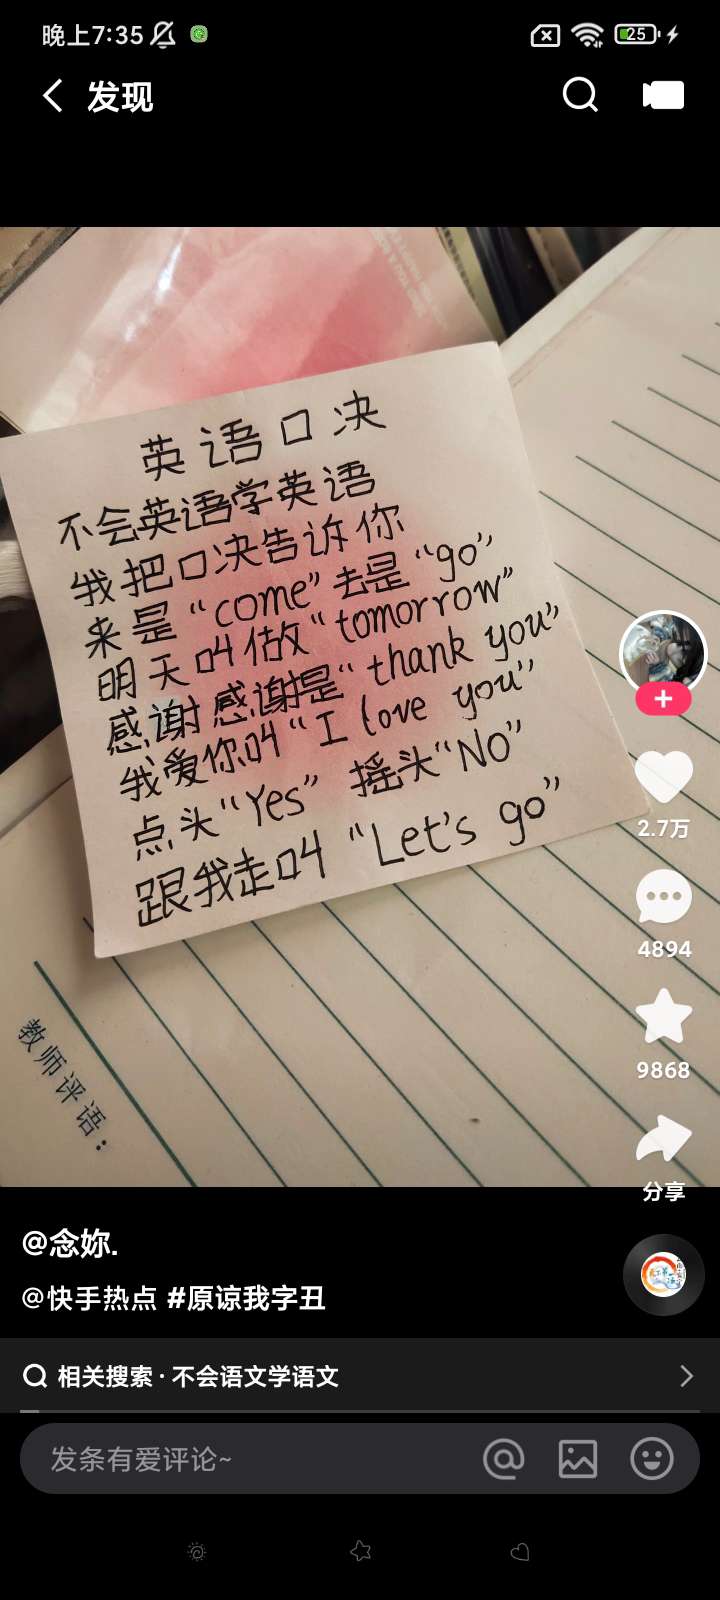 晚上7:35
25
发现
英语口决
不会英语学英语
我把口决告诉你
来是“come”去是“go”
明天叫做“tomorrow”
感谢感谢是“thank you”
我爱你叫“I love you”
点头“Yes” 摇头“NO”
跟我走叫“Let's go”
教师评语：
2.7万
4894
9868
分享
@念妳.
@快手热点 #原谅我字丑
相关搜索·不会语文学语文
发条有爱评论~